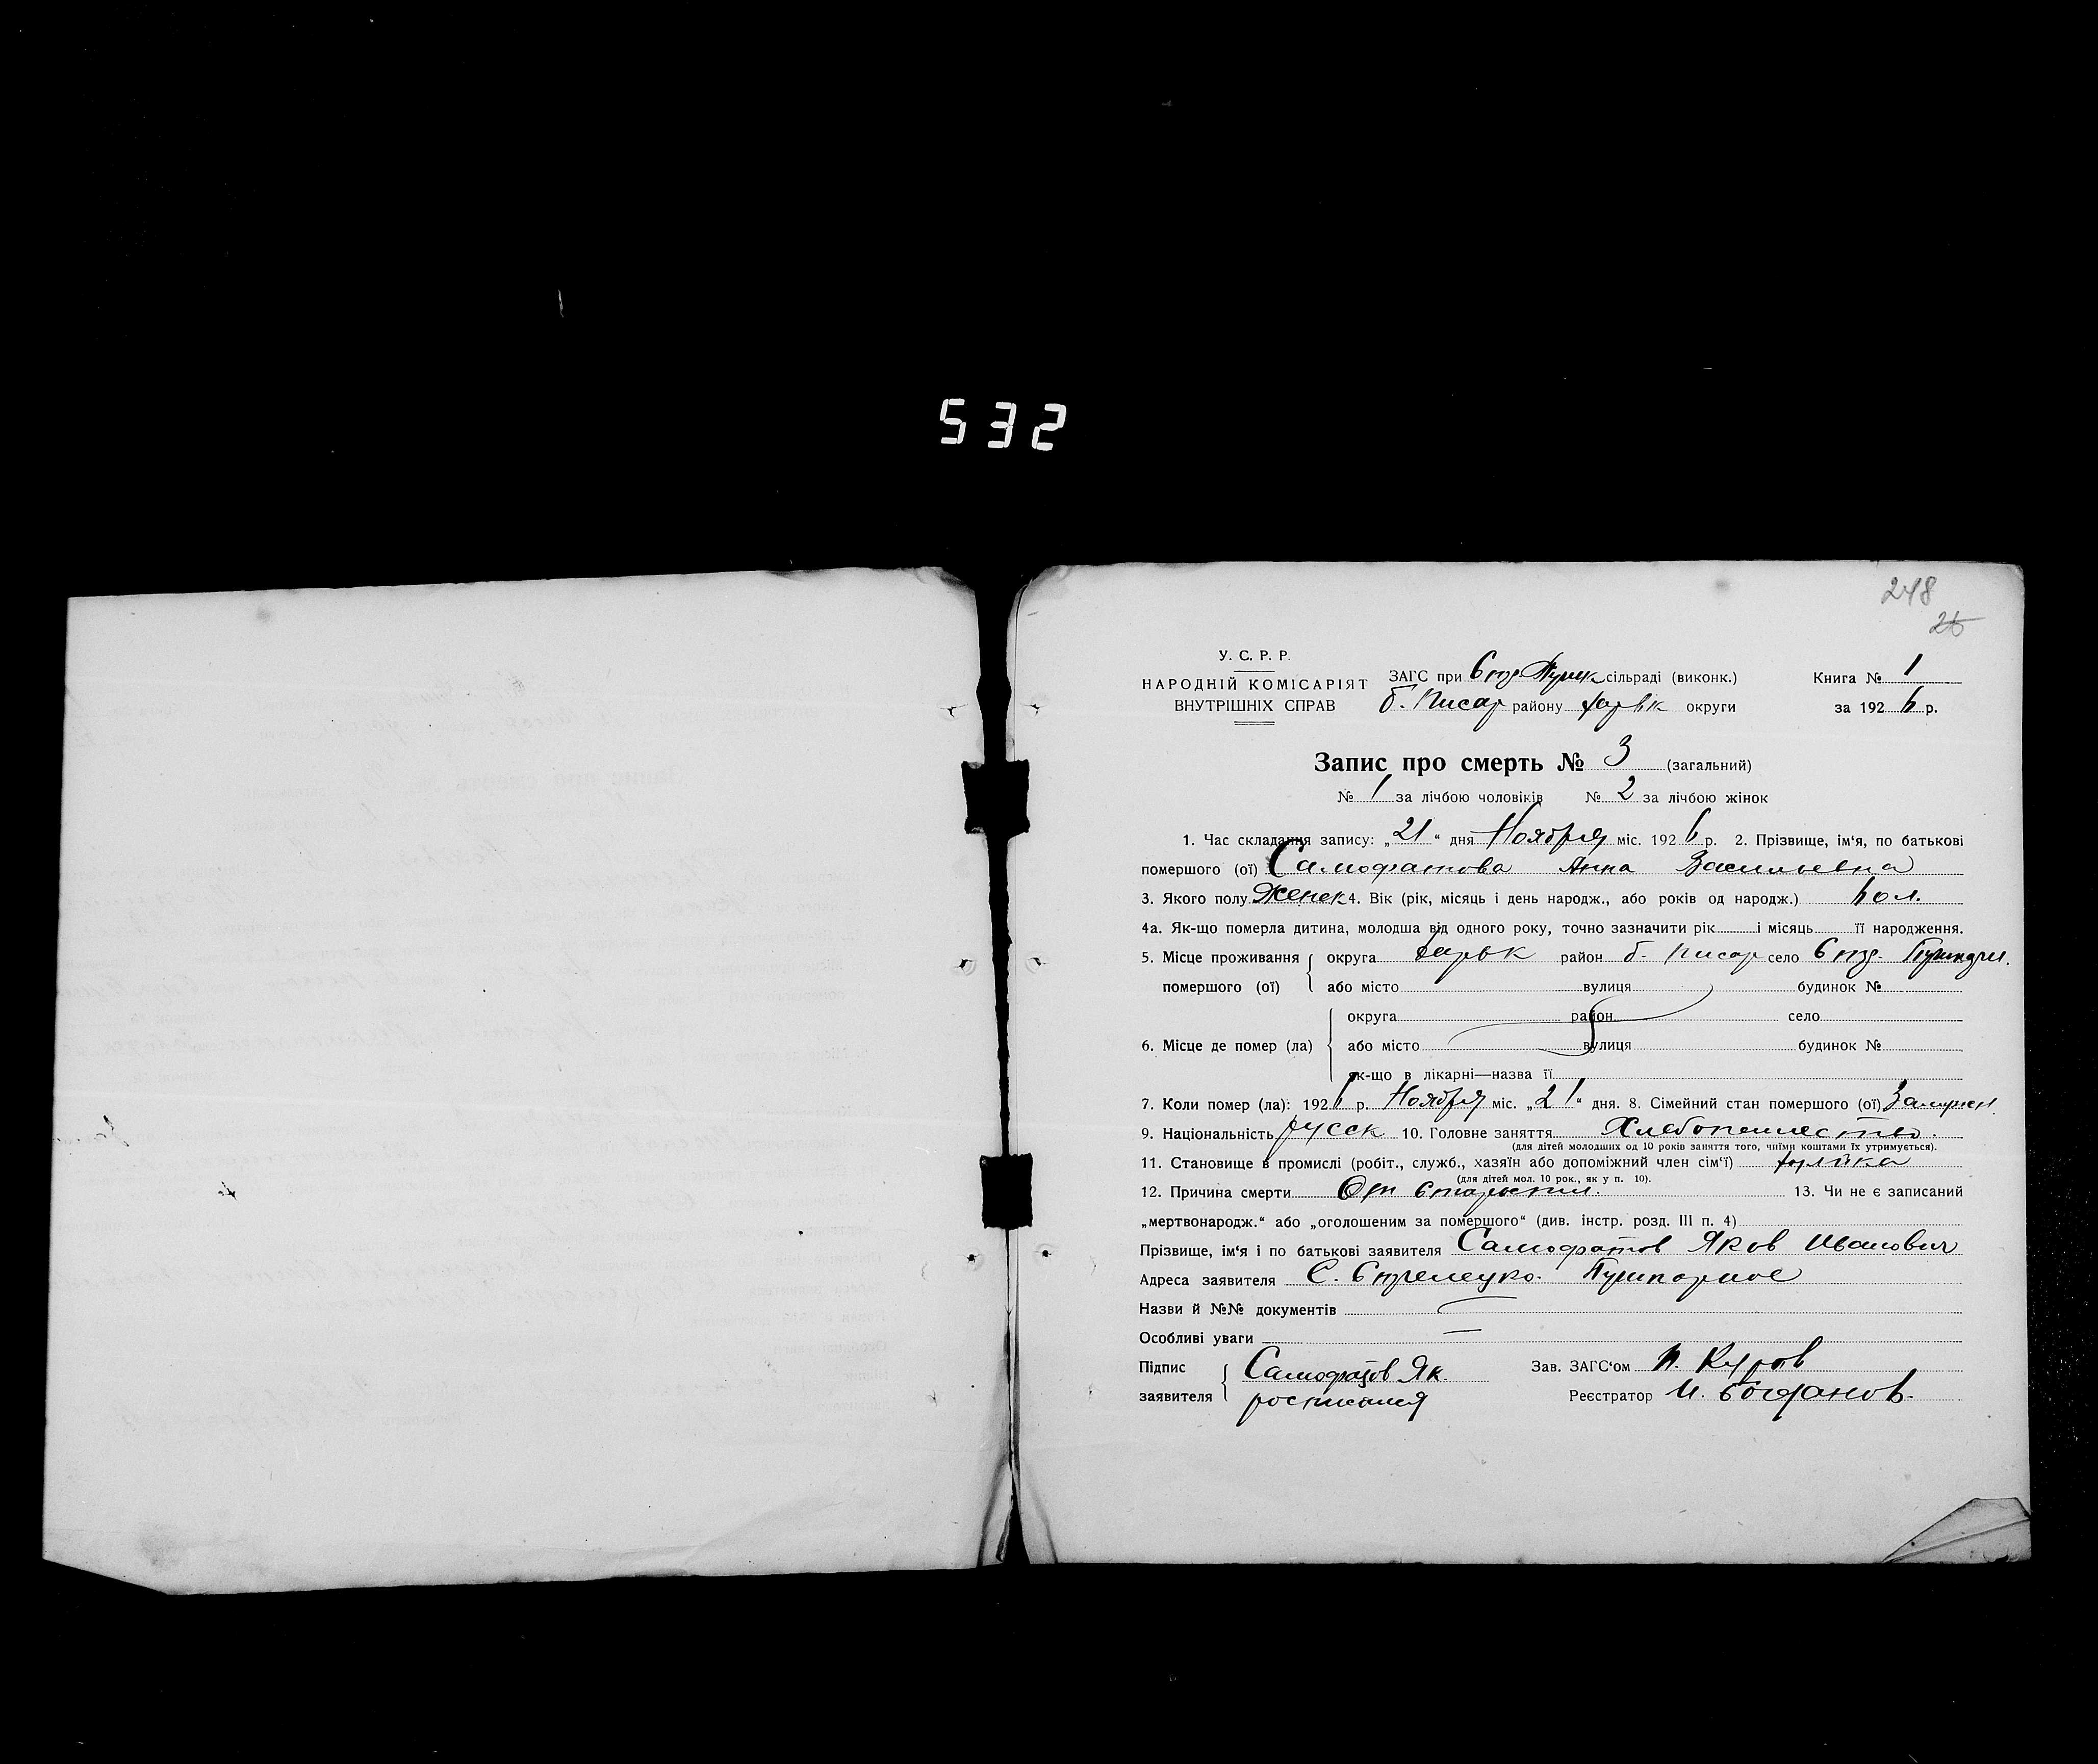 532
248
26
У. С. Р. Р.
НАРОДНІЙ КОМІСАРІЯТ
ВНУТРІШНІХ СПРАВ
ЗАГС при Стр Пушк сільраді (виконк.)
б. Писар району Харьк округи
Книга № 1
за 192 6 р.
Запис про смерть № 3 (загальний)
№ 1 за лічбою чоловіків № 2 за лічбою жінок
1. Час складання запису: „21“ дня Ноября міс. 192 6 р. 2. Прізвище, ім‘я, по батькові
помершого (ої) Самофатова Анна Васильевна
3. Якого полу Женск 4. Вік (рік, місяць і день народж., або років од народж.) 60 л.
4а. Як-що померла дитина, молодша від одного року, точно зазначити рік і місяць її народження.
5. Місце проживання округа Харьк район б. Писар село Стр.
помершого (ої) або місто вулиця будинок №
округа район село
6. Місце де помер (ла) або місто вулиця будинок №
як-що в лікарні—назва її
7. Коли помер (ла): 192 6 р. Ноября міс. „21“ дня. 8. Сімейний стан помершого (ої) Замужен
9. Національність русск 10. Головне заняття Хлебопашество.
(для дітей молодших од 10 років заняття того, чиїми коштами їх утримується).
11. Становище в промислі (робіт., служб., хазяїн або допоміжний член сім‘ї)
(для дітей мол. 10 рок., як у п. 10).
12. Причина смерти От старости. 13. Чи не є записаний
„мертвонародж.“ або „оголошеним за помершого“ (див. інстр. розд. III п. 4)
Прізвище, ім‘я і по батькові заявителя Самофатов Яков Иванович
Адреса заявителя С. Стрелецко. Пушкарное
Назви й №№ документів —
Особливі уваги —
Підпис Самофатов Як.
заявителя росписался
Зав. ЗАГС‘ом
Реєстратор И. Богданов.